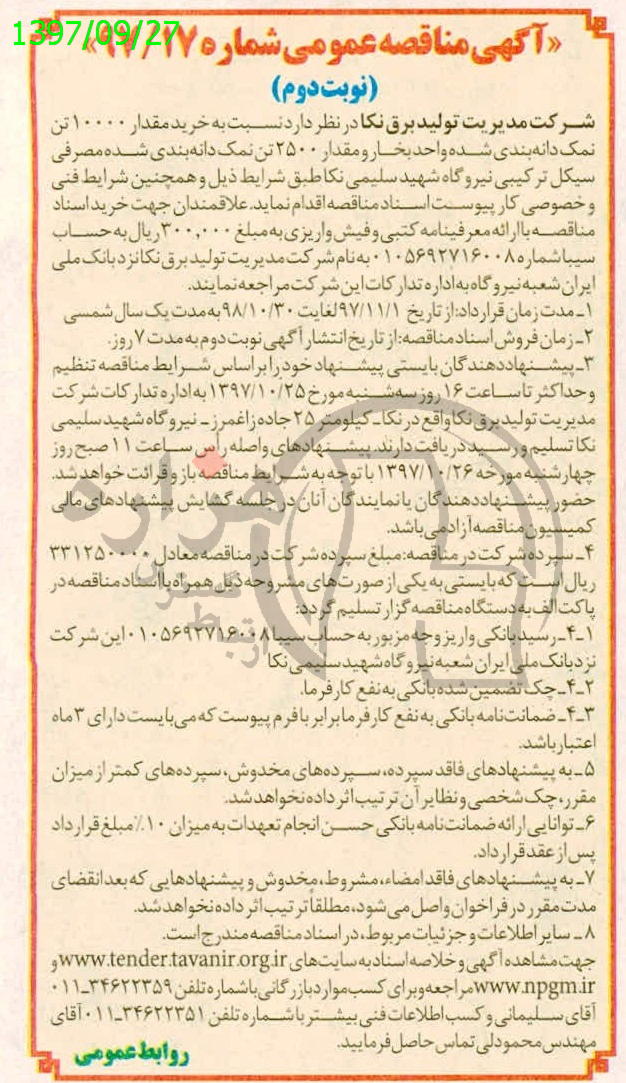 1397/09/27
«آگهی مناقصه عمومی شماره ۹۷/۱۷»
(نوبت دوم)
شرکت مدیریت تولید برق نکا در نظر دارد نسبت به خرید مقدار ۱۰۰۰۰ تن
نمک دانه‌بندی شده واحد بخار و مقدار ۲۵۰۰ تن نمک دانه‌بندی شده مصرفی
سیکل ترکیبی نیروگاه شهید سلیمی نکا طبق شرایط ذیل و همچنین شرایط فنی
و خصوصی کار پیوست اسناد مناقصه اقدام نماید. علاقمندان جهت خرید اسناد
مناقصه با ارائه معرفینامه کتبی و فیش واریزی به مبلغ ۳۰۰,۰۰۰ ریال به حساب
سیبا شماره ۰۱۰۵۶۹۲۷۱۶۰۰۸ به نام شرکت مدیریت تولید برق نکا نزد بانک ملی
ایران شعبه نیروگاه به اداره تدارکات این شرکت مراجعه نمایند.
۱ـ مدت زمان قرارداد: از تاریخ ۹۷/۱۱/۱ لغایت ۹۸/۱۰/۳۰ به مدت یک سال شمسی
۲ـ زمان فروش اسناد مناقصه: از تاریخ انتشار آگهی نوبت دوم به مدت ۷ روز.
۳ـ پیشنهاددهندگان بایستی پیشنهاد خود را بر اساس شرایط مناقصه تنظیم
و حداکثر تا ساعت ۱۶ روز سه‌شنبه مورخ ۱۳۹۷/۱۰/۲۵ به اداره تدارکات شرکت
مدیریت تولید برق نکا واقع در نکا ـ کیلومتر ۲۵ جاده زاغمرز ـ نیروگاه شهید سلیمی
نکا تسلیم و رسید دریافت دارند. پیشنهادهای واصله رأس ساعت ۱۱ صبح روز
چهارشنبه مورخه ۱۳۹۷/۱۰/۲۶ با توجه به شرایط مناقصه باز و قرائت خواهد شد.
حضور پیشنهاددهندگان یا نمایندگان آنان در جلسه گشایش پیشنهادهای مالی
کمیسیون مناقصه آزاد می‌باشد.
۴ـ سپرده شرکت در مناقصه: مبلغ سپرده شرکت در مناقصه معادل ۳۳۱۲۵۰۰۰۰
ریال است که بایستی به یکی از صورت‌های مشروحه ذیل همراه با اسناد مناقصه در
پاکت الف به دستگاه مناقصه گزار تسلیم گردد:
۴ـ۱ـ رسید بانکی واریز وجه مزبور به حساب سیبا ۰۱۰۵۶۹۲۷۱۶۰۰۸ این شرکت
نزد بانک ملی ایران شعبه نیروگاه شهید سلیمی نکا
۴ـ۲ـ چک تضمین شده بانکی به نفع کارفرما.
۴ـ۳ـ ضمانت‌نامه بانکی به نفع کارفرما برابر با فرم پیوست که می‌بایست دارای ۳ ماه
اعتبار باشد.
۵ـ به پیشنهادهای فاقد سپرده، سپرده‌های مخدوش، سپرده‌های کمتر از میزان
مقرر، چک شخصی و نظایر آن ترتیب اثر داده نخواهد شد.
۶ـ توانایی ارائه ضمانت‌نامه بانکی حسن انجام تعهدات به میزان ۱۰٪ مبلغ قرارداد
پس از عقد قرارداد.
۷ـ به پیشنهادهای فاقد امضاء، مشروط، مخدوش و پیشنهادهایی که بعد انقضای
مدت مقرر در فراخوان واصل می‌شود، مطلقاً ترتیب اثر داده نخواهد شد.
۸ـ سایر اطلاعات و جزئیات مربوط، در اسناد مناقصه مندرج است.
جهت مشاهده آگهی و خلاصه اسناد به سایت‌های www.tender.tavanir.org.ir و
www.npgm.ir مراجعه و برای کسب موارد بازرگانی با شماره تلفن ۳۴۶۲۲۳۵۹ـ۰۱۱
آقای سلیمانی و کسب اطلاعات فنی بیشتر با شماره تلفن ۳۴۶۲۲۳۵۱ـ۰۱۱ آقای
مهندس محمودلی تماس حاصل فرمایید.
روابط عمومی